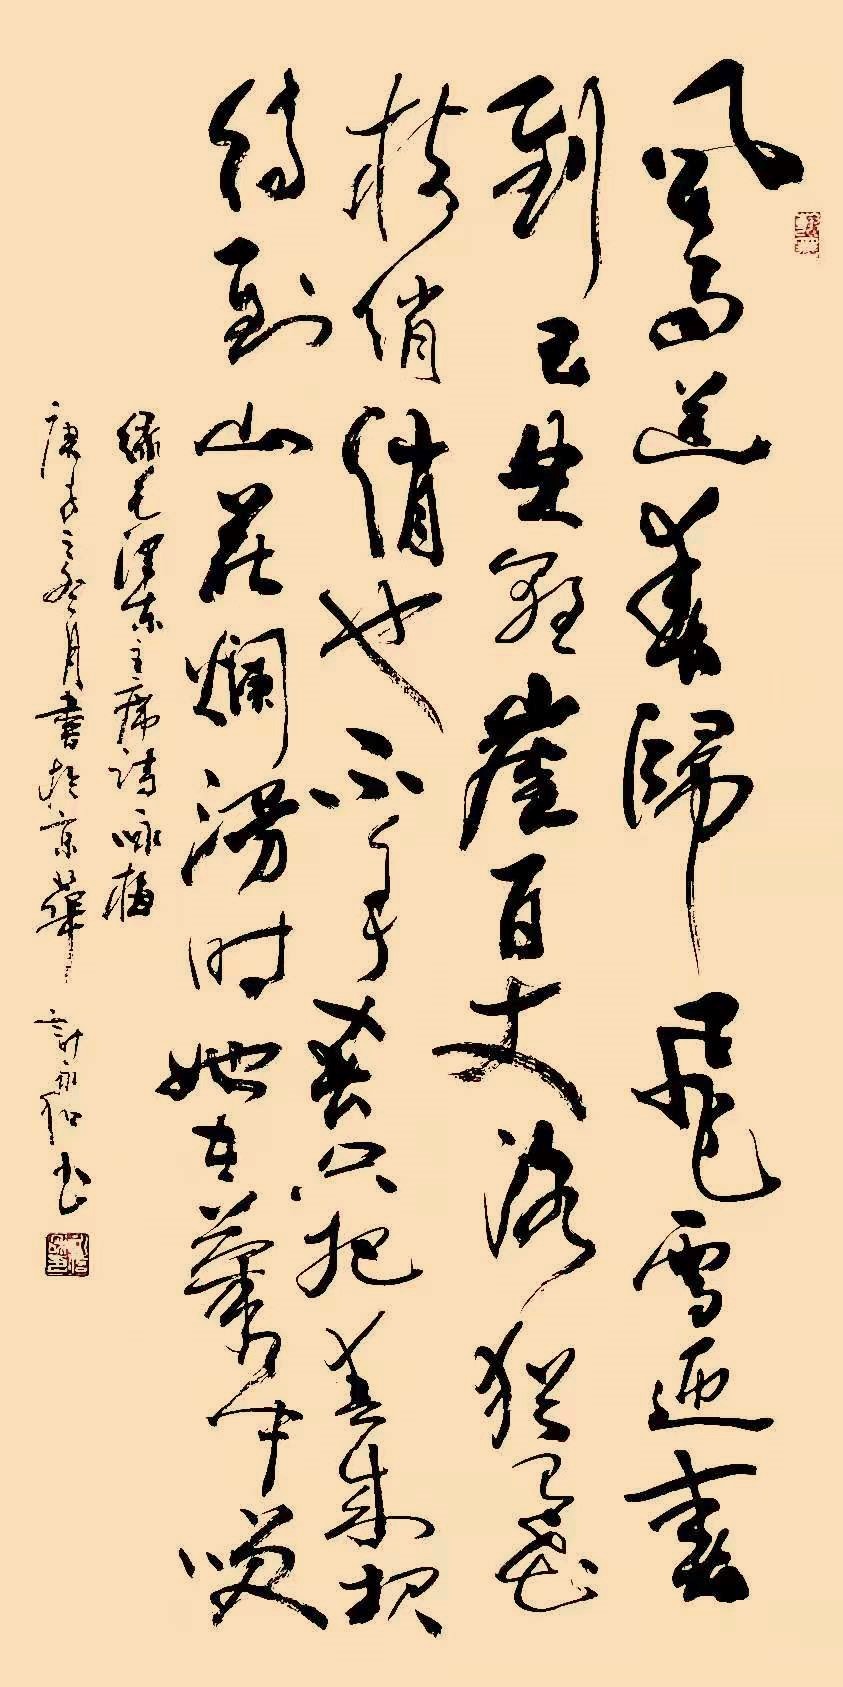 風雨送春歸飛雪迎春
到已是懸崖百丈冰猶有花
枝俏俏也不爭春只把春來報
待到山花爛漫时她在叢中笑
錄毛澤东主席诗咏梅
庚子之冬月書於京華 永书